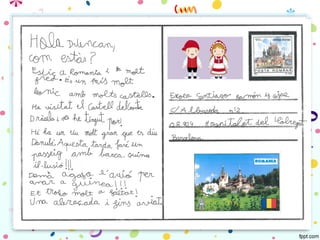 Hola Duncan,
com estàs?
Estic a Romania i fa molt
fred. Es un país molt
bonic amb molts castells.
He visitat el Castell de
Dràcula i no he tingut por!
Hi ha un riu molt gran que es diu
Danubi. Aquesta tarda faré un
passeig amb barca quina
il·lusió!!!
Demà agafo l'avió per
anar a Guinea!!!
Et trobo molt a faltar!
Una abraçada i fins aviat
POSTA ROMANA
Escola Santiago Ramón y Cajal
C/ nº2
08904 Hospitalet del Llobregat
Barcelona
ROMANIA
fppt.com